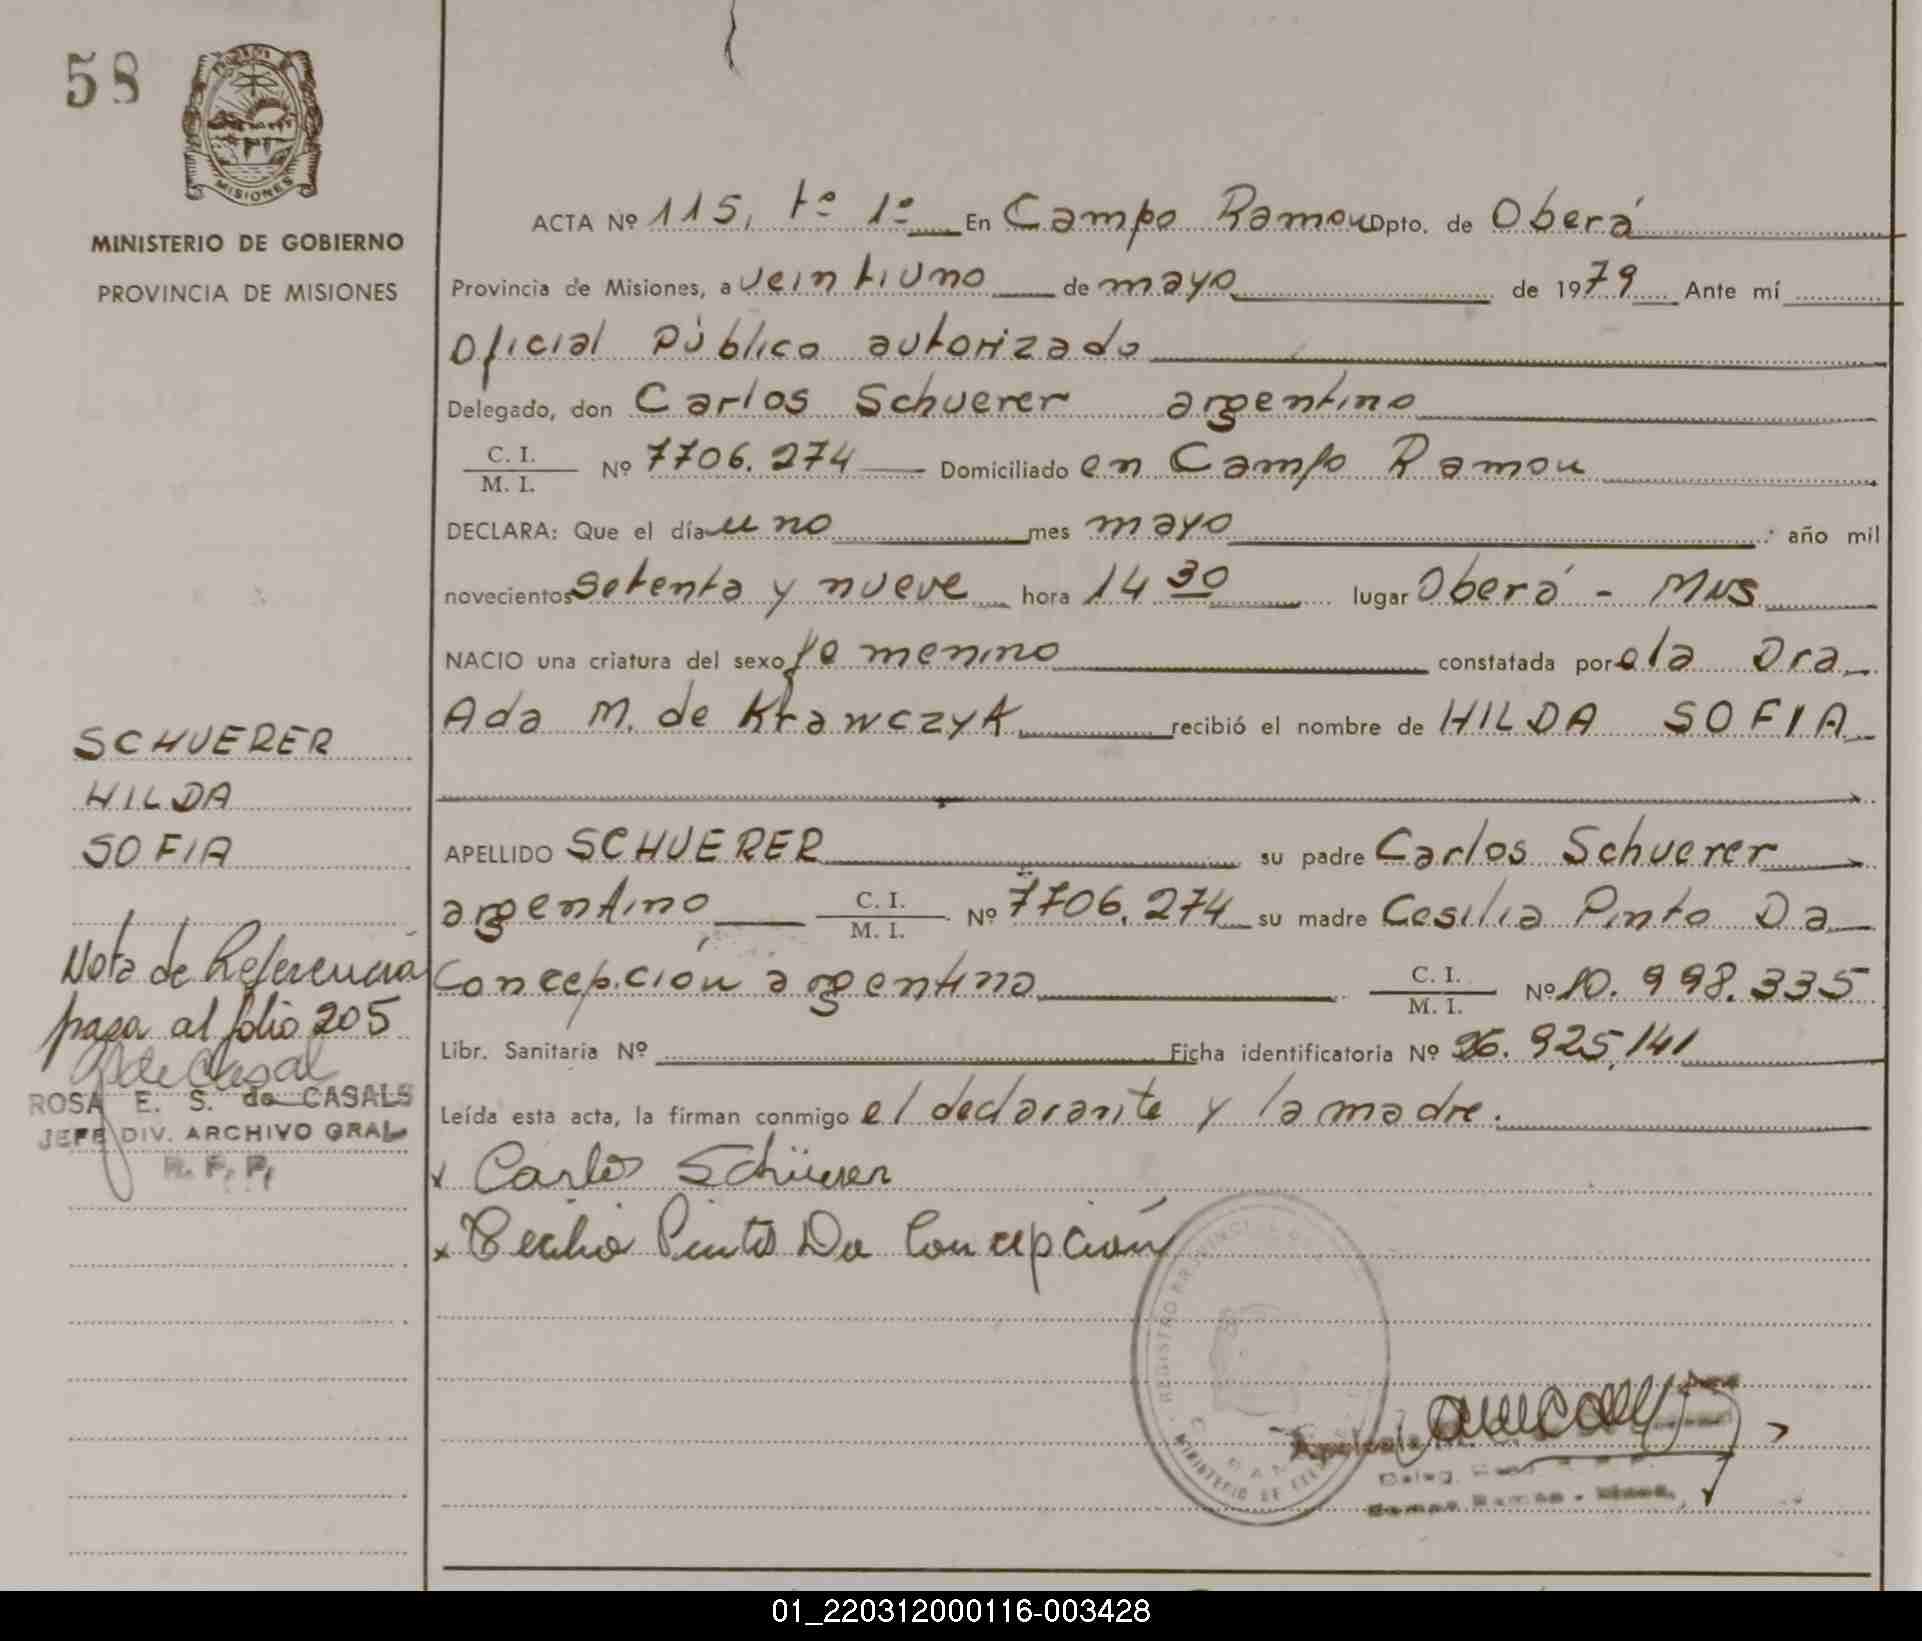 58
MISIONES
MINISTERIO DE GOBIERNO
PROVINCIA DE MISIONES
SCHUERER
HILDA
SOFIA
Nota de Referencia
pasa al folio 205
ROSA E. S. de CASALS
JEFE DIV. ARCHIVO GRAL
R. P. P.
ACTA Nº 115, tº 1º En Campo Ramon Dpto. de Oberá
Provincia de Misiones, a veintiuno de mayo de 1979 Ante mí
Oficial Público autorizado
Delegado, don Carlos Schuerer argentino
C. I. / M. I. Nº 7706.274 Domiciliado en Campo Ramon
DECLARA: Que el día uno mes mayo año mil
novecientos setenta y nueve hora 14 30 lugar Oberá - Mns
NACIO una criatura del sexo femenino constatada por la Dra
Ada M. de Krawczyk recibió el nombre de HILDA SOFIA
APELLIDO SCHUERER su padre Carlos Schuerer
argentino C. I. / M. I. Nº 7706.274 su madre Cesilia Pinto Da
Concepción argentina C. I. / M. I. Nº 10.998.335
Libr. Sanitaria Nº Ficha identificatoria Nº 26.925,141
Leída esta acta, la firman conmigo el declarante y la madre.
x Carlos Schüerer
x Cecilia Pinto Da Concepción
REGISTRO PROVINCIAL
MINISTERIO DE
01_220312000116-003428